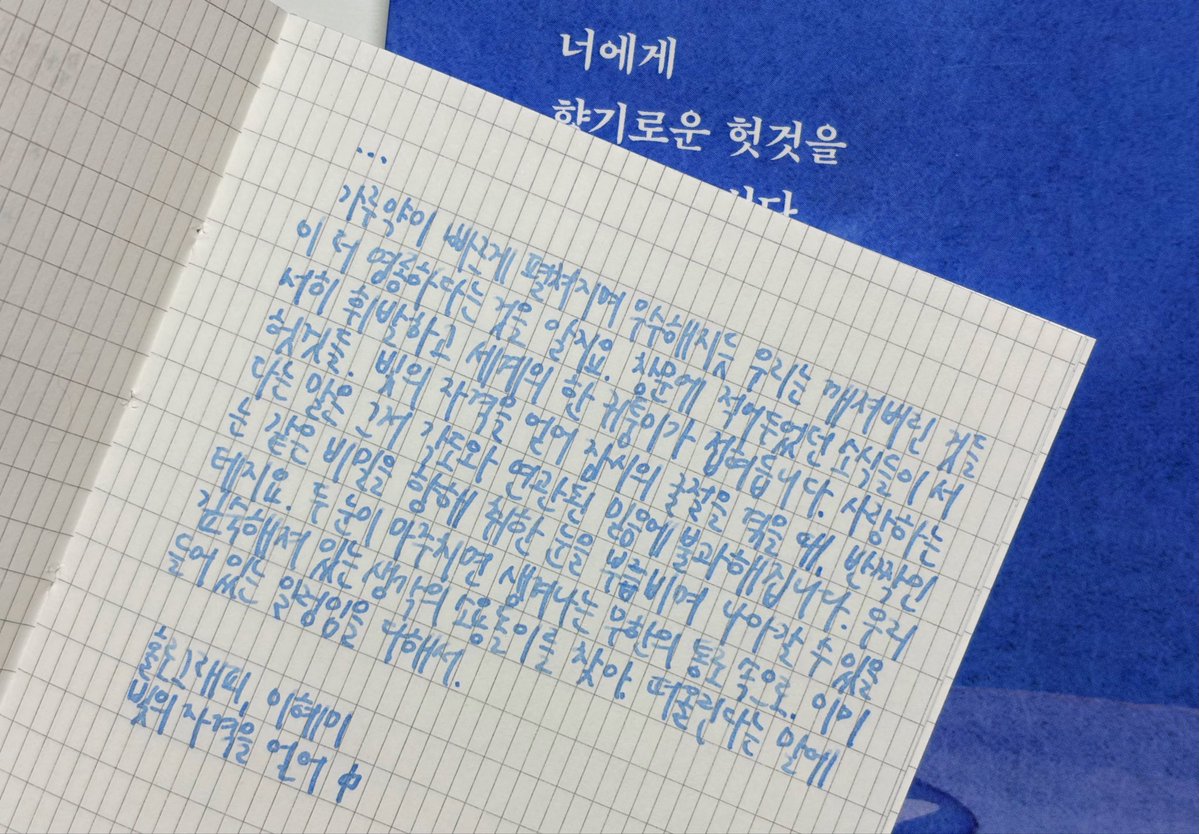 너에게
향기로운 헛것을
...
가루약이 빠르게 펼쳐지며 우수해지듯 우리는 깨져버린 것들
이 더 영롱하다는 것을 알지요. 창문에 적어두었던 소식들이 서
서히 휘발하고 세계의 한 귀퉁이가 접혀듭니다. 사랑하는
헛것들. 빛의 자격을 얻어 잠시의 굴절을 겪을 때, 반짝인
다는 말은 그저 각도와 연관된 믿음에 불과해집니다. 우리
는 같은 비밀을 향해 취한 눈을 나아갈 수 있을
테지요. 두 눈이 마주치면 생겨나는 무한의 통로 속으로. 이미
깊숙해져 있는 생각의 소용돌이를 찾아. 떠올린다는 말에
들어 있는 일렁임을 다해서.
홀로그래피, 이혜미
빛의 자격을 얻어 中